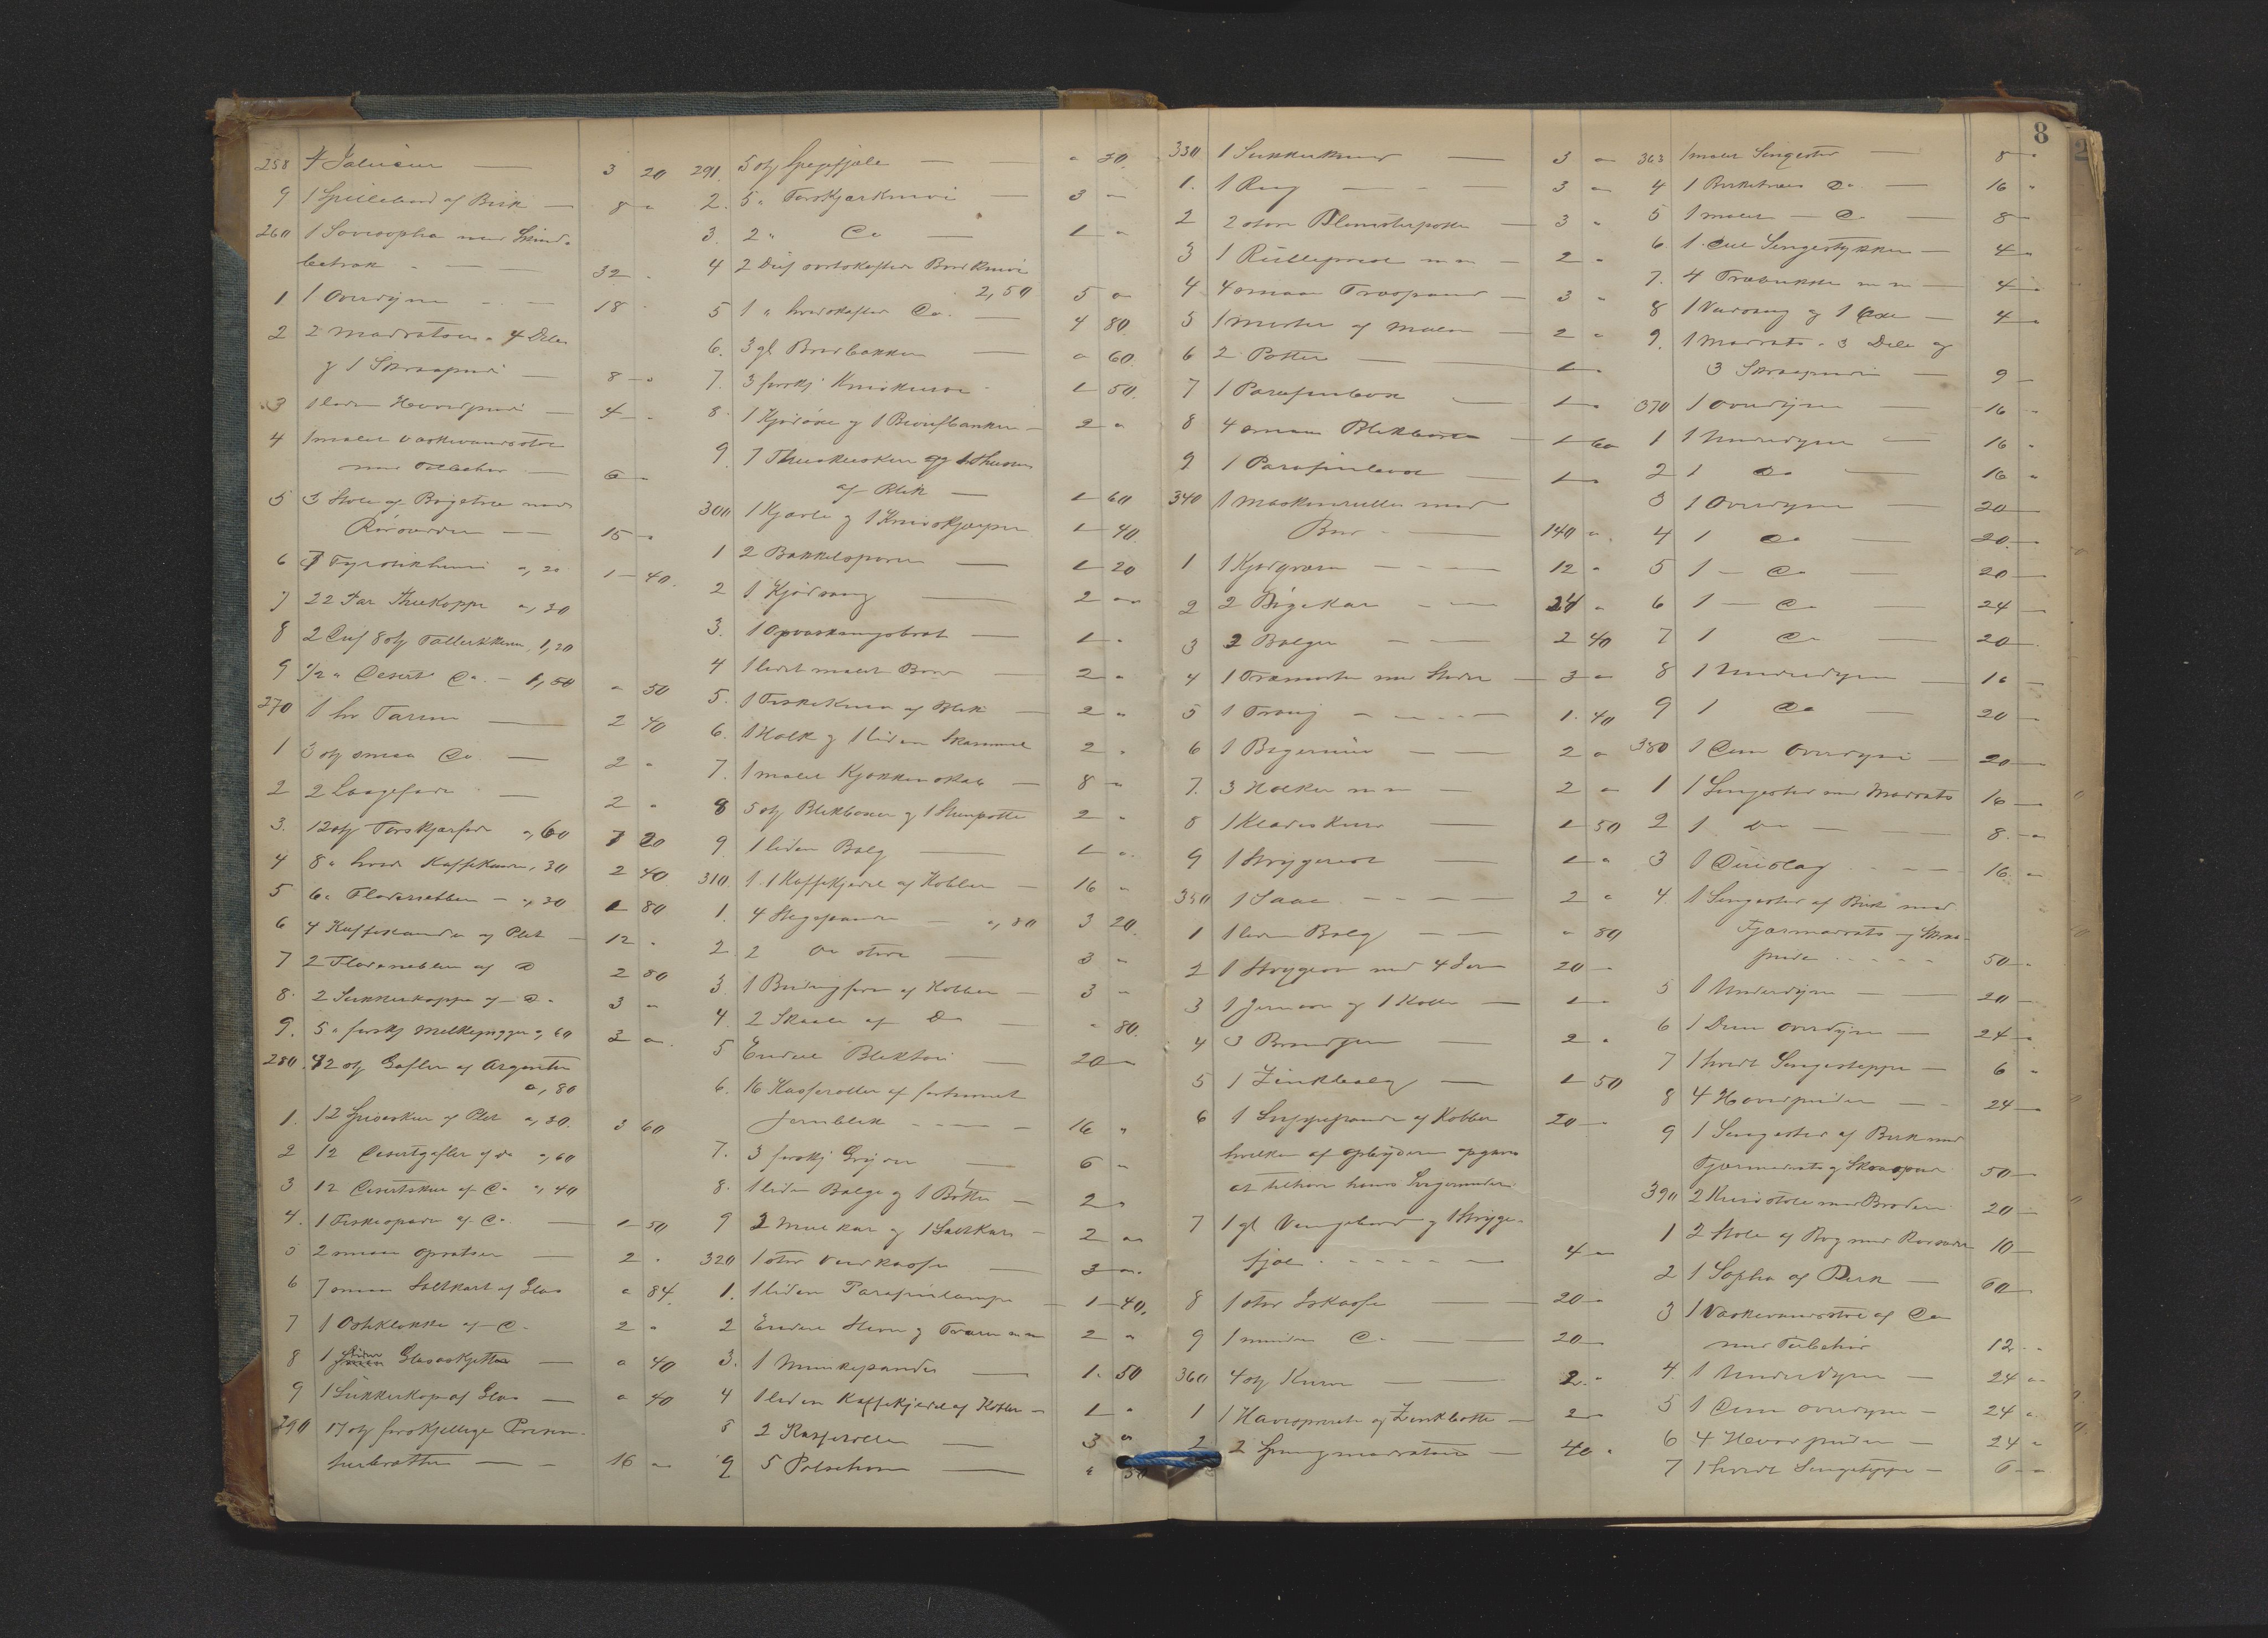 8
258 4 Salvatur — 3 20
9 1 Spillebord af Birk — 8 "
260 1 Sovesopha med Skind-
betræk - — 32 "
1 1 Overdyne - — 18 "
2 2 Madratser a 4 Dele
og 1 Skraapude — 8 "
3 1 liden Hovedpude — 4 "
4 1 malet Vaskevandsstol
med Tilbehør — 6 "
5 3 Stole af Bøgetræ med
Rørsæder — 15 "
6 7 Fyrstikhuse a, 20 1 40
7 22 Par Theekopper a, 30
8 2 Dus 8 stk Tallerkkener 1,20
9 1/2 " Desert Do. - 1,50 " 50
270 1 hv Tarin — 2 40
1 3 stk smaa Do — 2 "
2 2 Laagefade — 2 "
3. 12 stk Forskjærfade a, 60 7 20
4 8 " hvide Kaffekander, 30 2 40
5 6 " Flødenebber - a, 30 1 80
6 4 Kaffekander af Plet — 12 "
7 2 Flødenebber af D 2 80
8. 2 Sukkerkopper af D. 3 "
9. 5 " forskj Melkemugger a, 60 3 "
280. 12 stk Gafler af Argentan
a, 80
1. 12 Spiseskeer af Plet a, 30. 3 60
2 12 Desertgafler af do a, 60
3 12 Desertskeer af Do a, 40
4. 1 Fiskespade af Do. — 1 50
5 2 smaa Opsatser — 2 "
6 7 smaa Saltkar af Glas " 84
7 1 Osteklokke af D. 2 "
8 1 liden Glasaskjette — " 40
9 1 Sukkerkop af Glas — " 40
290 17 stk forskjellige Presen-
terbretter — 16 "
291. 5 stk Spegefjæle — " 50.
2. 5 " Forskjærknive — 3 "
3. 2 " Do — 1 "
4 2 Dus sortskaftede Bordknive
2,50 5 "
5 1 " hvidskaftet Do. — 4 80.
6. 3 gl Brødbakker — " 60.
7. 3 forskj Knivkurve 1 50.
8. 1 Kjødøxe og 1 Beufbanker — 2 "
9. 7 Theebrikker og 1 Thedaase
af Blik — 1 60
300 1 Kjævle og 1 Knivskjærper 1 40.
1 2 Bakkelsporer — 1 20
2 1 Kjødsaug — 2 "
3. 1 Opvaskningsbret — 1 "
4 1 lidet malet Bord — 2 "
5. 1 Fiskekurv af Blik — 2 "
6. 1 Holk og 1 liden Skammel 2 "
7. 1 malet Kjøkkenskab — 8 "
8 5 stk Blikbøsser og 1 Steenpotte 2 "
9 1 liden Balg — 1 "
310. 1. 1 Kaffekjedel af Kobber — 16 "
1. 4 Stegepander — a, 80 3 20.
2. 2 Do store — 3 "
3. 1 Budingform af Kobber — 3 "
4. 2 Skaale af Do — " 80.
5 Endel Bliktøi — 20 "
6. 16 Kasseroller af fortinnet
Jernblik — 16 "
7. 3 forskj Gryder — 6 "
8. 1 liden Balge og 1 Bøtte — 2 "
9 2 Melkekar og 1 Saltkar — 2 "
320 1 stor Vedkasse — 3 "
1. 1 liden Parafinlampe — 1 40.
2 Endel Steen og Træ m m 2 "
3. 1 Munkepande — 1. 50
4 1 liden Kaffekjedel af Kobber — 1 "
5 2 Kasseroller — 3 "
9 5 Pølsehorn — " 50
330 1 Sukkerkurv — 3 "
1. 1 Reng — 3 "
2 2 store Blomsterpotter — 3 "
3 1 Rullepresse m m — 2 "
4 4 smaa Træspand — 3 "
5 1 Morter af Malm — 2 "
6 2 Potter — 1 "
7 1 Parafinlevn — 1 "
8 4 smaa Blikbøsser — 1 60
9 1 Parafinlevn — 1 "
340 1 Maskinrulle med
Bord - — 140 "
1 1 Kjødqværn — 12 "
2 2 Bøgekar — 24 "
3 3 Balger — 2 40
4 1 Træmorter med Støder — 3 "
5 1 Traug — 1. 40
6 1 Bagerum — 2 "
7. 3 Holker m m — 2 "
8 1 Klædeskurv — 1 50
9 1 Strygerest — 1 "
350 1 Saae — 2 "
1 1 liden Balg — " 80
2 1 Strygeovn med 4 Jern 20 "
3 1 Jernovn og 1 Kolle — 1 "
4 3 Brandjern — 2 "
5 1 Zinkbalg — 1 50
6 1 Suppepande af Kobber 20 "
hvilken af Opbyderen opgives
at tilhøre hans Svigermoder
7 1 gl Vaugebord og 1 Stryge-
fjæl — 4 "
8 1 stor Iskasse — 20 "
9 1 mindre Do — 20 "
360 4 stk Kurve — 2. "
1 1 Havesprøite og Zinkbøtte — 2 "
2 2 Springmadratser — 40 "
363 1 malet Sengested — 8 "
4 1 Birketræs Do. — 16 "
5 1 malet — Do — 8 "
6. 1. Deel Sengestykker — 4 "
7. 4 Træbukke m m — 4 "
8 1 Vedsaug og 1 Øxe — 4 "
9. 1 Madrats a 3 Dele og
3 Skraapuder — 9 "
370 1 Overdyne — 16 "
1 1 Underdyne — 16 "
2 1 Do — 16 "
3 1 Overdyne — 20 —
4 1 Do — 20. —
5 1 — Do — 20 —
6 1 — Do — 24 —
7 1 Do — 20 —
8 1 Underdyne — 16 —
9 1 Do — 20 —
380 1 Duun Overdyne — 20 —
1 1 Sengested med Madrats 16 —
2 1 Do — 8. "
3 1 Duvslag — 16. "
4. 1 Sengested af Birk med
Fjærmadrats og Skraa-
pude — 50 "
5 1 Underdyne — 20 "
6 1 Duun Overdyne — 24 "
7 1 hvidt Sengeteppe — 6 "
8 4 Hovedpuder — 24 —
9 1 Sengested af Birk med
Fjærmadrats og Skraapude 50 —
390 2 Kurvstole med Broderi 20 —
1 2 Stole af Bøg med Rørsæder 10 —
2 1 Sopha af Birk — 60 —
3 1 Vaskevandsstol af Do
med Tilbehør 12 "
4. 1 Underdyne — 24 "
5 1 Duun Overdyne — 24 "
6 4 Hovedpuder — 24 "
7 1 hvidt Sengeteppe — 6 "